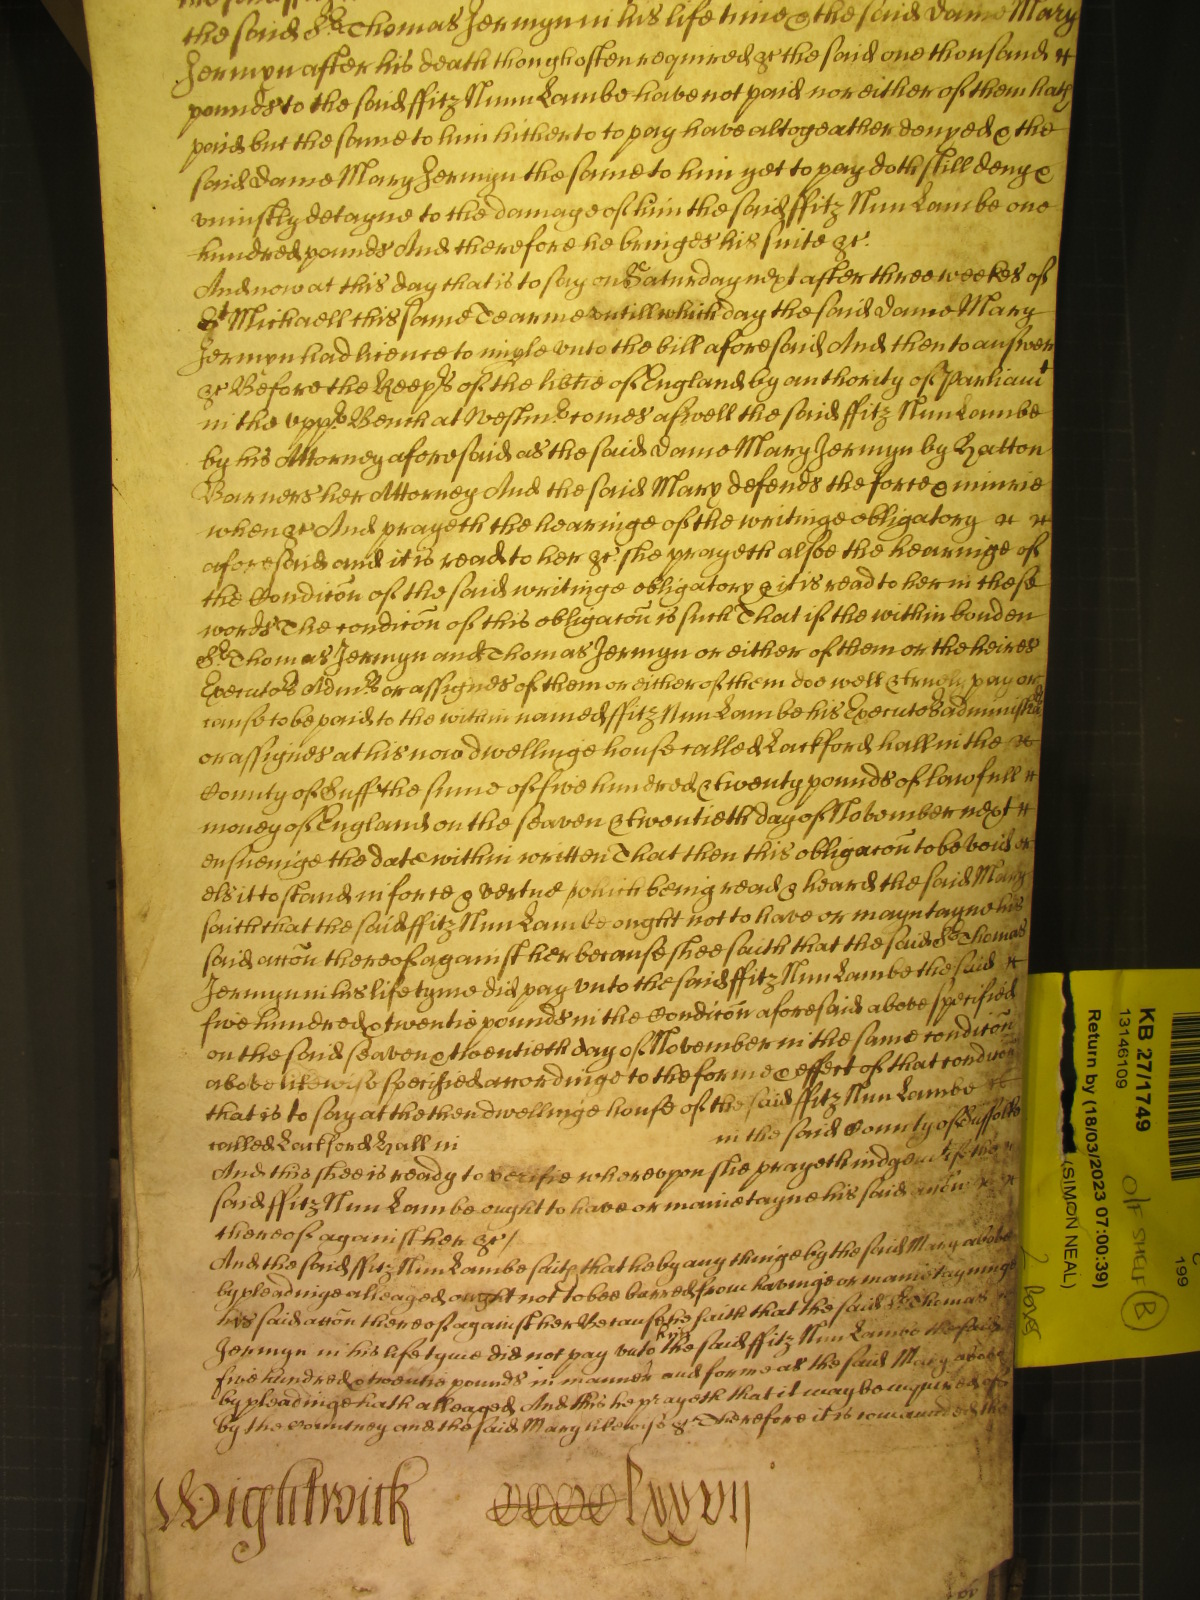 the said Sr Thomas Jermyn in his life time & the said Dame Mary
Jermyn after his death though often required &c the said one thousand
pounds to the said ffitz Nunn Lambe have not paid nor either of them hath
paid but the same to him hitherto to pay have altogeather denyed & the
said Dame Mary Jermyn the same to him yet to pay doth still deny &
uniustly detayne to the damage of him the said ffitz Nun Lambe one
hundred pounds And therefore he bringes his suite &c.
And now at this day that is to say on Saturday next after three weekes of
St Michaell this same Tearme untill which day the said Dame Mary
Jermyn had licence to imple unto the bill aforesaid And then to answer
&c Before the Keeprs of the libtie of England by authority of Parliamt
in the uppr Bench at Westmr comes aswell the said ffitz Nun Lambe
by his Attorney aforesaid as the said Dame Mary Jermyn by Hatton
Barners her Attorney And the said Mary defends the force & iniurie
when &c And prayeth the hearinge of the writinge obligatory
aforesaid and it is read to her &c she prayeth alsoe the hearinge of
the Condicōn of the said writinge obligatory & it is read to her in these
words The condicōn of this obligacōn is such That if the within bonden
Sr Thomas Jermyn and Thomas Jermyn or either of them or the heires
Executors Admrs or assignes of them or either of them doe well & truely pay or
cause to be paid to the within named ffitz Nun Lambe his Executors administrs
or assignes at his now dwellinge house called Lackford hall in the
County of Suff the sume of five hundred & twenty pounds of lawfull
money of England on the seaven & twentieth day of November next
ensueinge the date within written That then this obligacōn to be void or
els it to stand in force & vertue which being read & heard the said Mary
saith that the said ffitz Nun Lambe ought not to have or mayntayne his
said accōn thereof against her because shee saith that the said Sr Thomas
Jermyn in his life tyme did pay unto the said ffitz Nun Lambe the said
five hundred & twentie pounds in the Condicōn aforesaid above specified
on the said seaven & twentieth day of November in the same condicōn
above likewise specified accordinge to the forme & effect of that condicōn
that is to say at the then dwellinge house of the said ffitz Nun Lambe
called Lackford Hall in in the said County of Suffolke
And this shee is ready to verifie whereupon she prayeth iudgemt if the
said ffitz Nun Lambe ought to have or mainetayne his said accōn
thereof against her &c/
And the said ffitz Nun Lambe saith that he by any thinge by the said Mary above
by pleadinge alleaged ought not to bee barred from havinge or mainetayninge
his said accōn thereof against her Because he saith that the said Sr Thomas
Jermyn in his life tyme did not pay unto him the said ffitz Nun Lambe the said
five hundred & twentie pounds in manner and forme as the said Mary above
by pleadinge hath alleaged And this he prayeth that it may be inquired of
by the Countrey and the said Mary likewise &c Therefore it is comaunded the
Wightwick cccclxxvij
KB 27/1749
13146109
Return by (18/03/2023 07:00:39)
(SIMON NEAL)
off shelf B
199